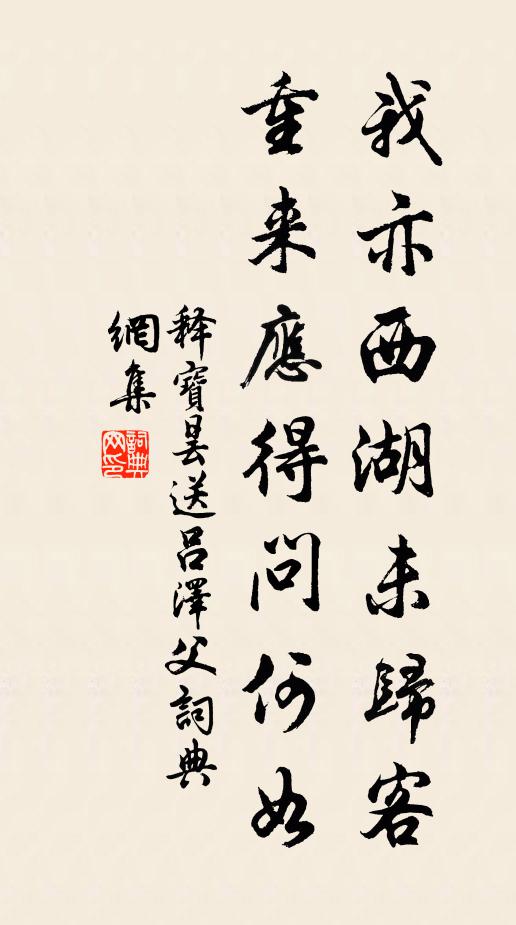 我亦西湖未歸客
重来應得問何如
释寶曇送呂澤父詞典
網集
詞典网印